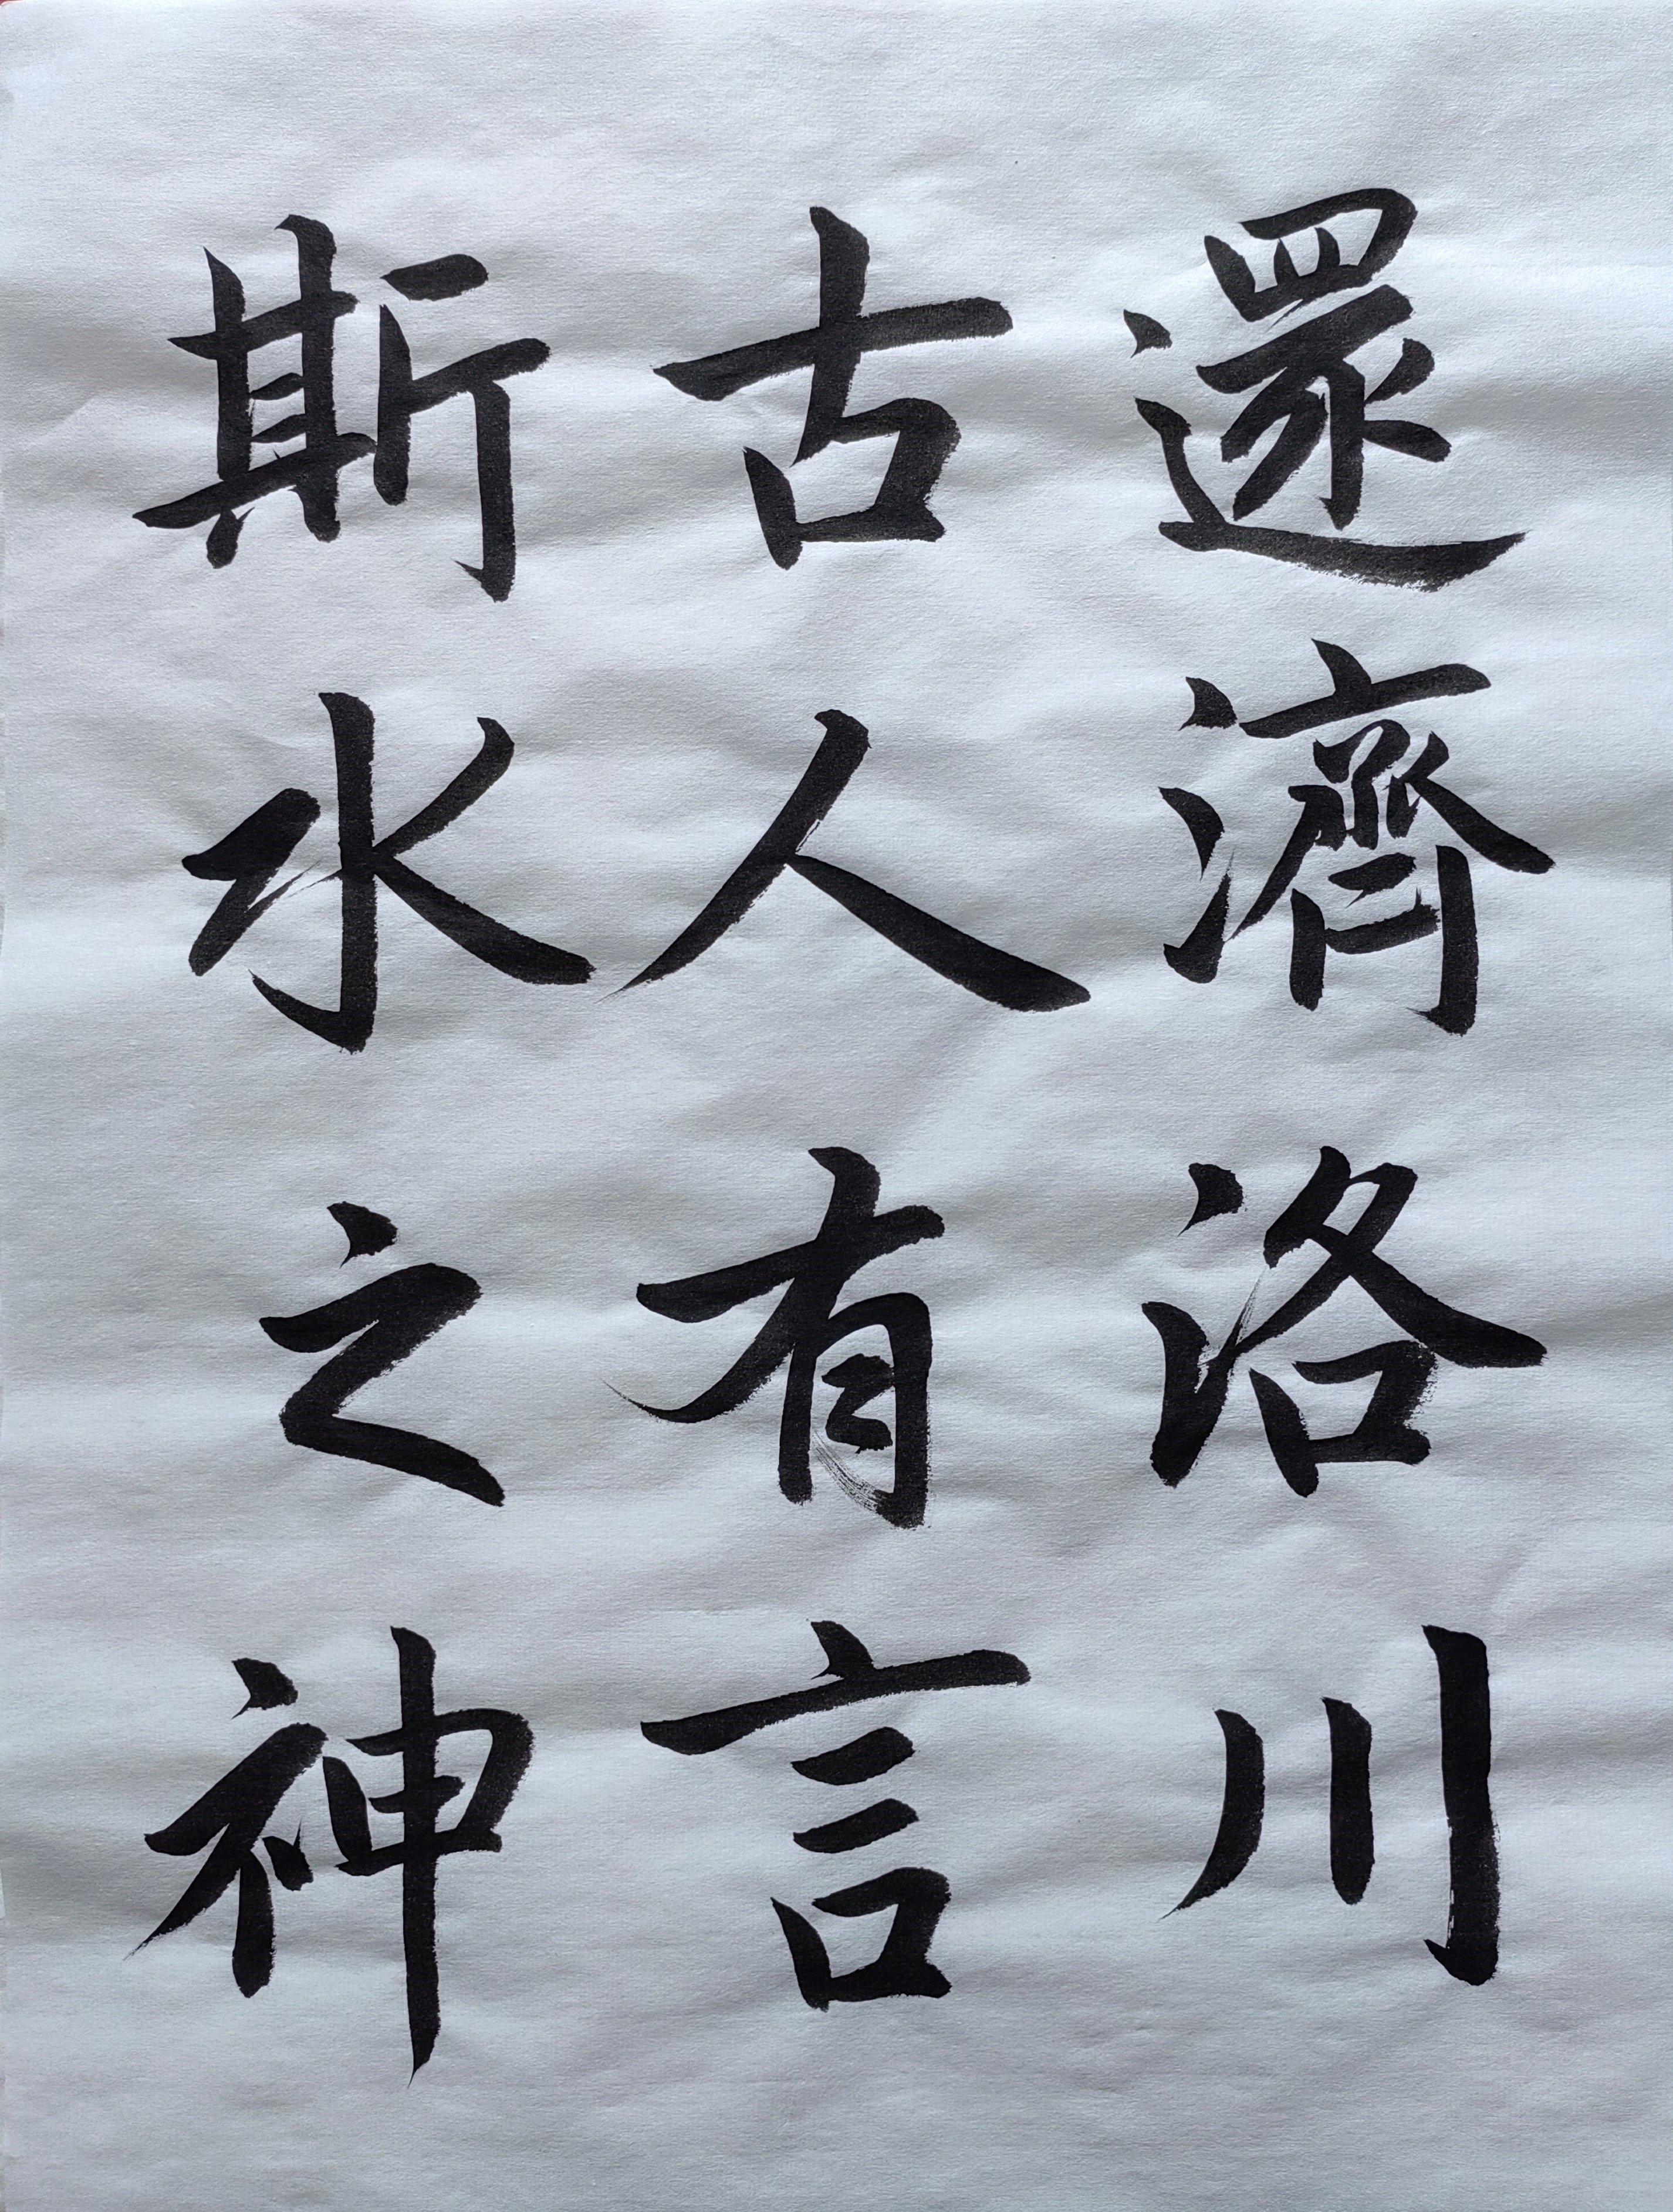 還濟洛川
古人有言
斯水之神